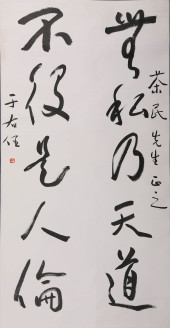 茶民先生正之
無私乃天道
不役是人倫
于右任